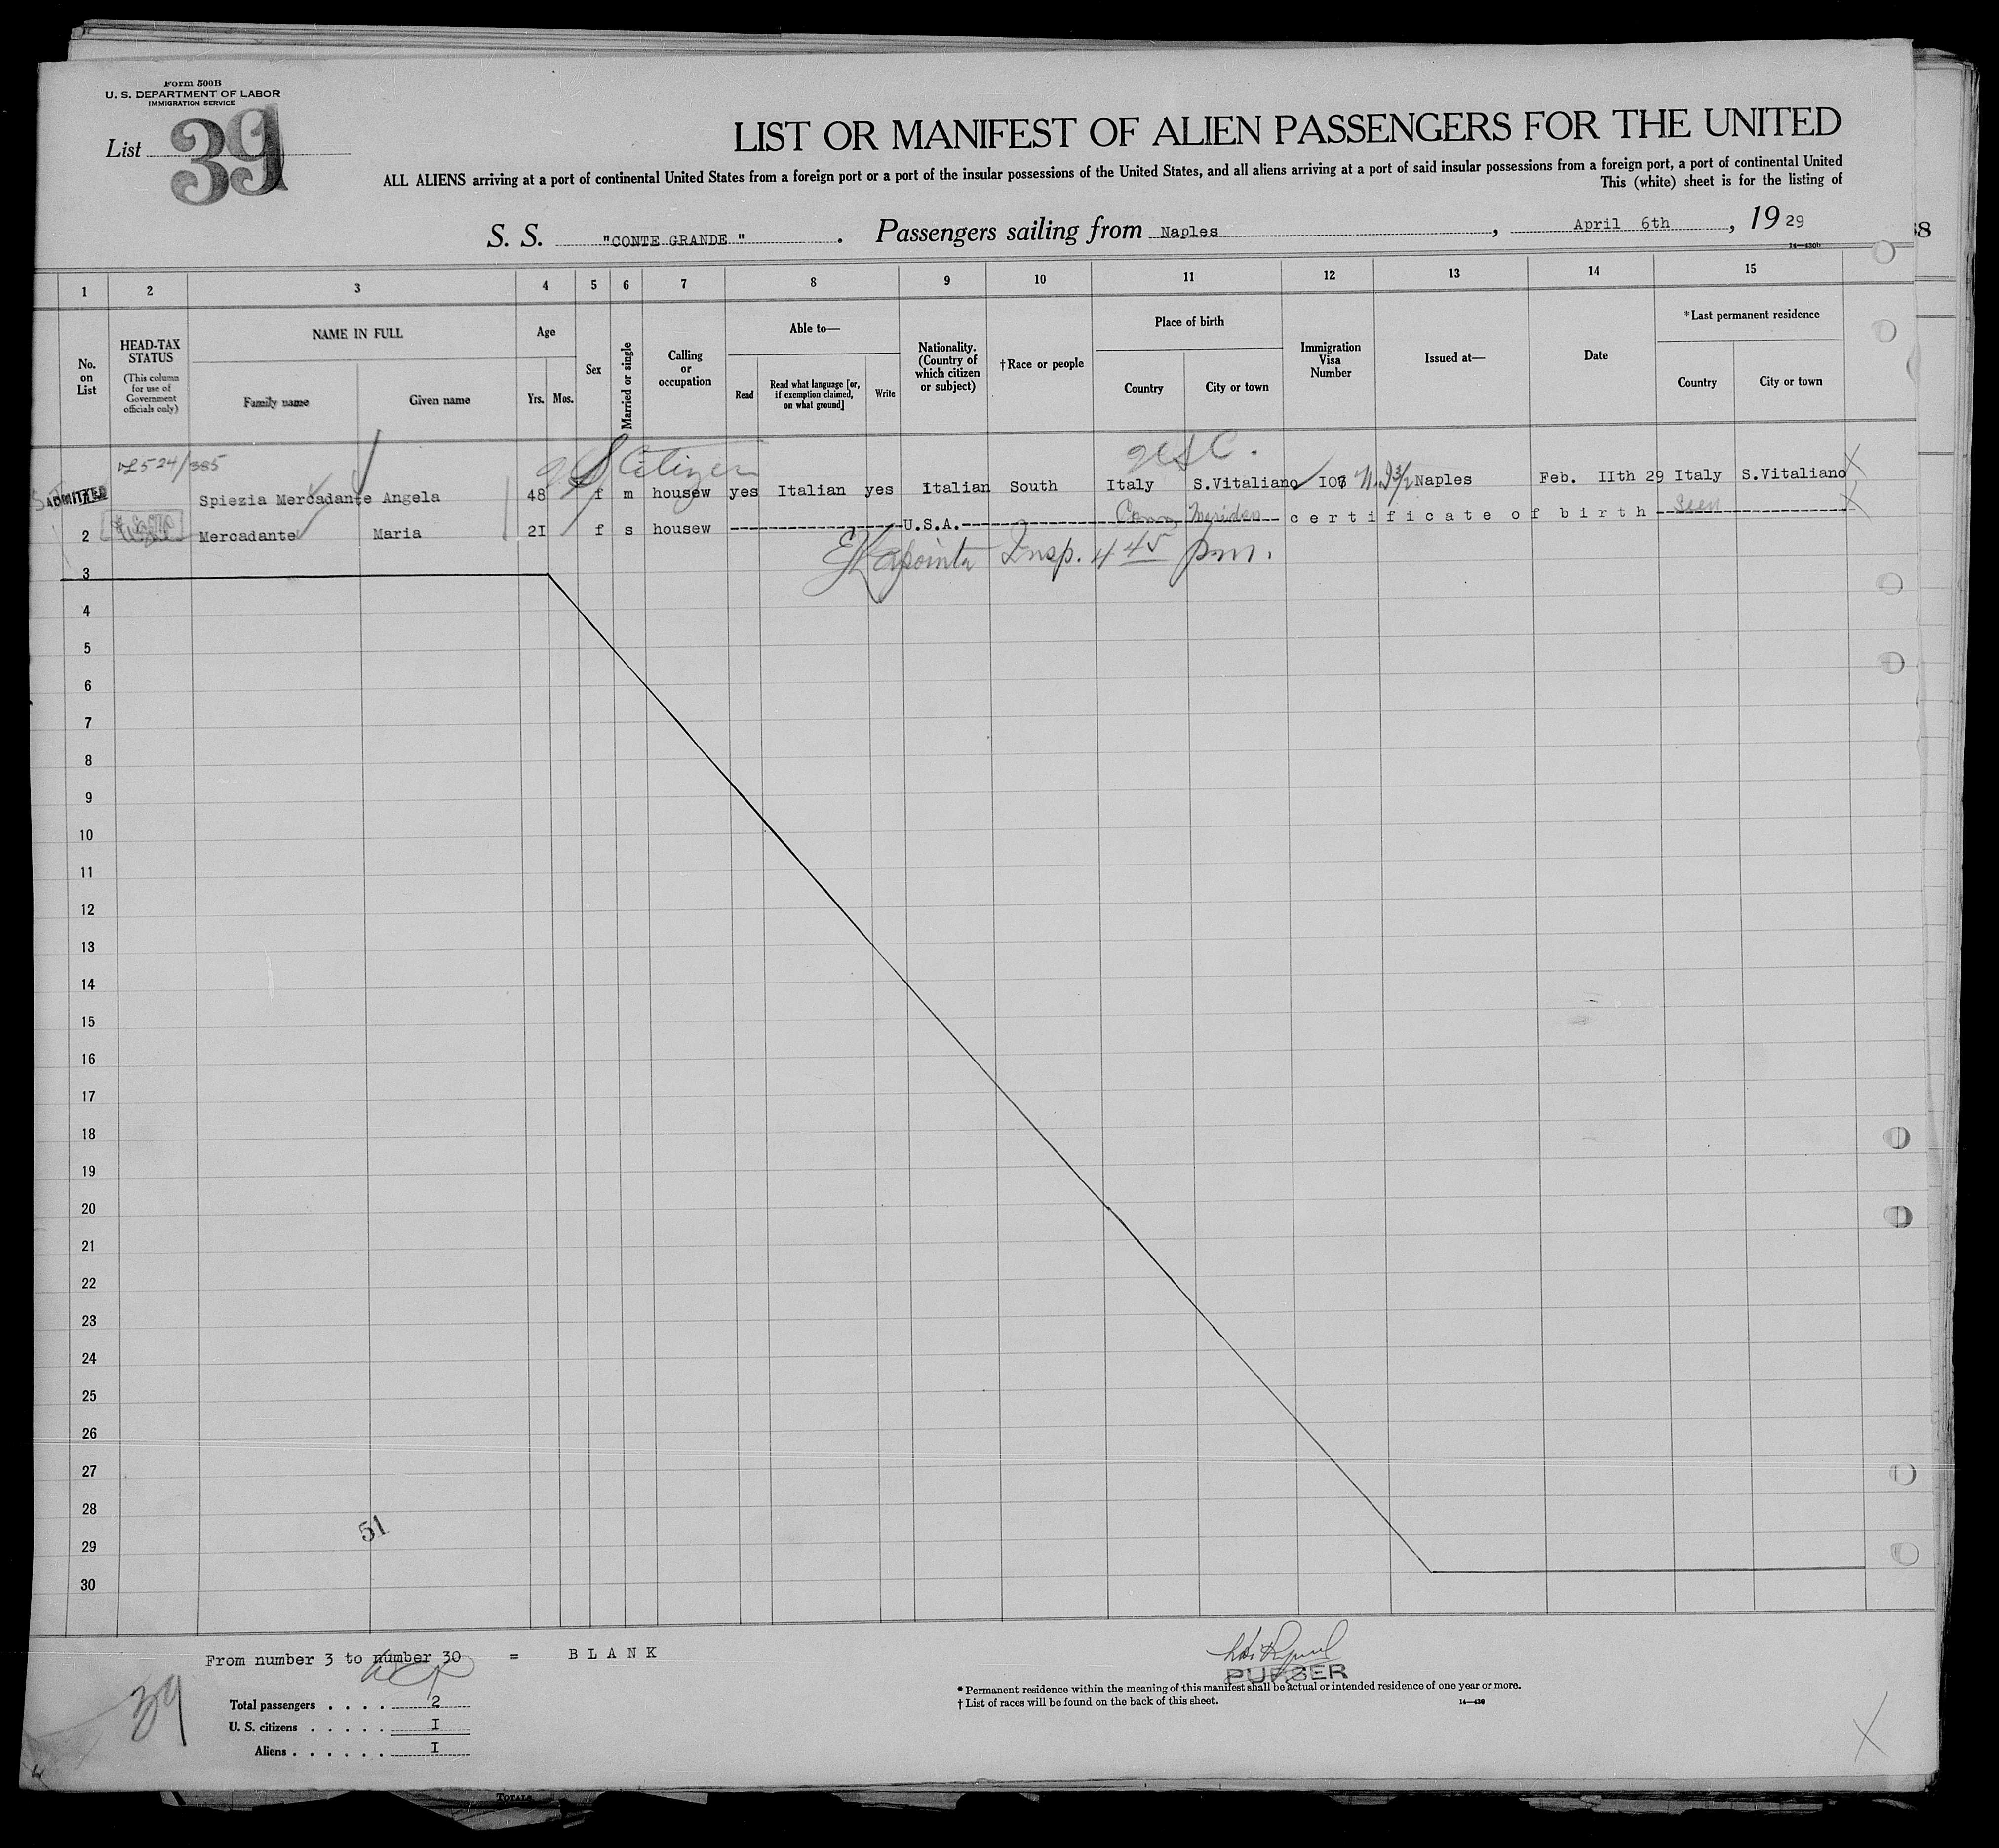 Form 500B
U. S. DEPARTMENT OF LABOR
IMMIGRATION SERVICE
List 39
LIST OR MANIFEST OF ALIEN PASSENGERS FOR THE UNITED
ALL ALIENS arriving at a port of continental United States from a foreign port or a port of the insular possessions of the United States, and all aliens arriving at a port of said insular possessions from a foreign port, a port of continental United
This (white) sheet is for the listing of
S. S. "CONTE GRANDE". Passengers sailing from Naples, April 6th, 1929
14—430b
1 2 3 4 5 6 7 8 9 10 11 12 13 14 15
No. on List
HEAD-TAX STATUS
(This column for use of Government officials only)
NAME IN FULL
Family name
Given name
Age
Yrs. Mos.
Sex
Married or single
Calling or occupation
Able to—
Read
Read what language [or, if exemption claimed, on what ground]
Write
Nationality. (Country of which citizen or subject)
†Race or people
Place of birth
Country
City or town
Immigration Visa Number
Issued at—
Date
*Last permanent residence
Country
City or town
524/385 US Citizen U.S.C.
ADMITTED Spiezia Mercadante Angela 48 f m housew yes Italian yes Italian South Italy S.Vitaliano Naples Feb. IIth 29 Italy S.Vitaliano
2 Mercadante Maria 2I f s housew U.S.A. Conn, Meriden certificate of birth Seen
Lapointe Insp. 4 45 pm.
3
4
5
6
7
8
9
10
11
12
13
14
15
16
17
18
19
20
21
22
23
24
25
26
27
28
51
29
30
From number 3 to number 30 = BLANK
PURSER
39
Total passengers . . . . 2
U. S. citizens . . . . . I
Aliens . . . . . . I
* Permanent residence within the meaning of this manifest shall be actual or intended residence of one year or more.
† List of races will be found on the back of this sheet. 14—430
TOTALS